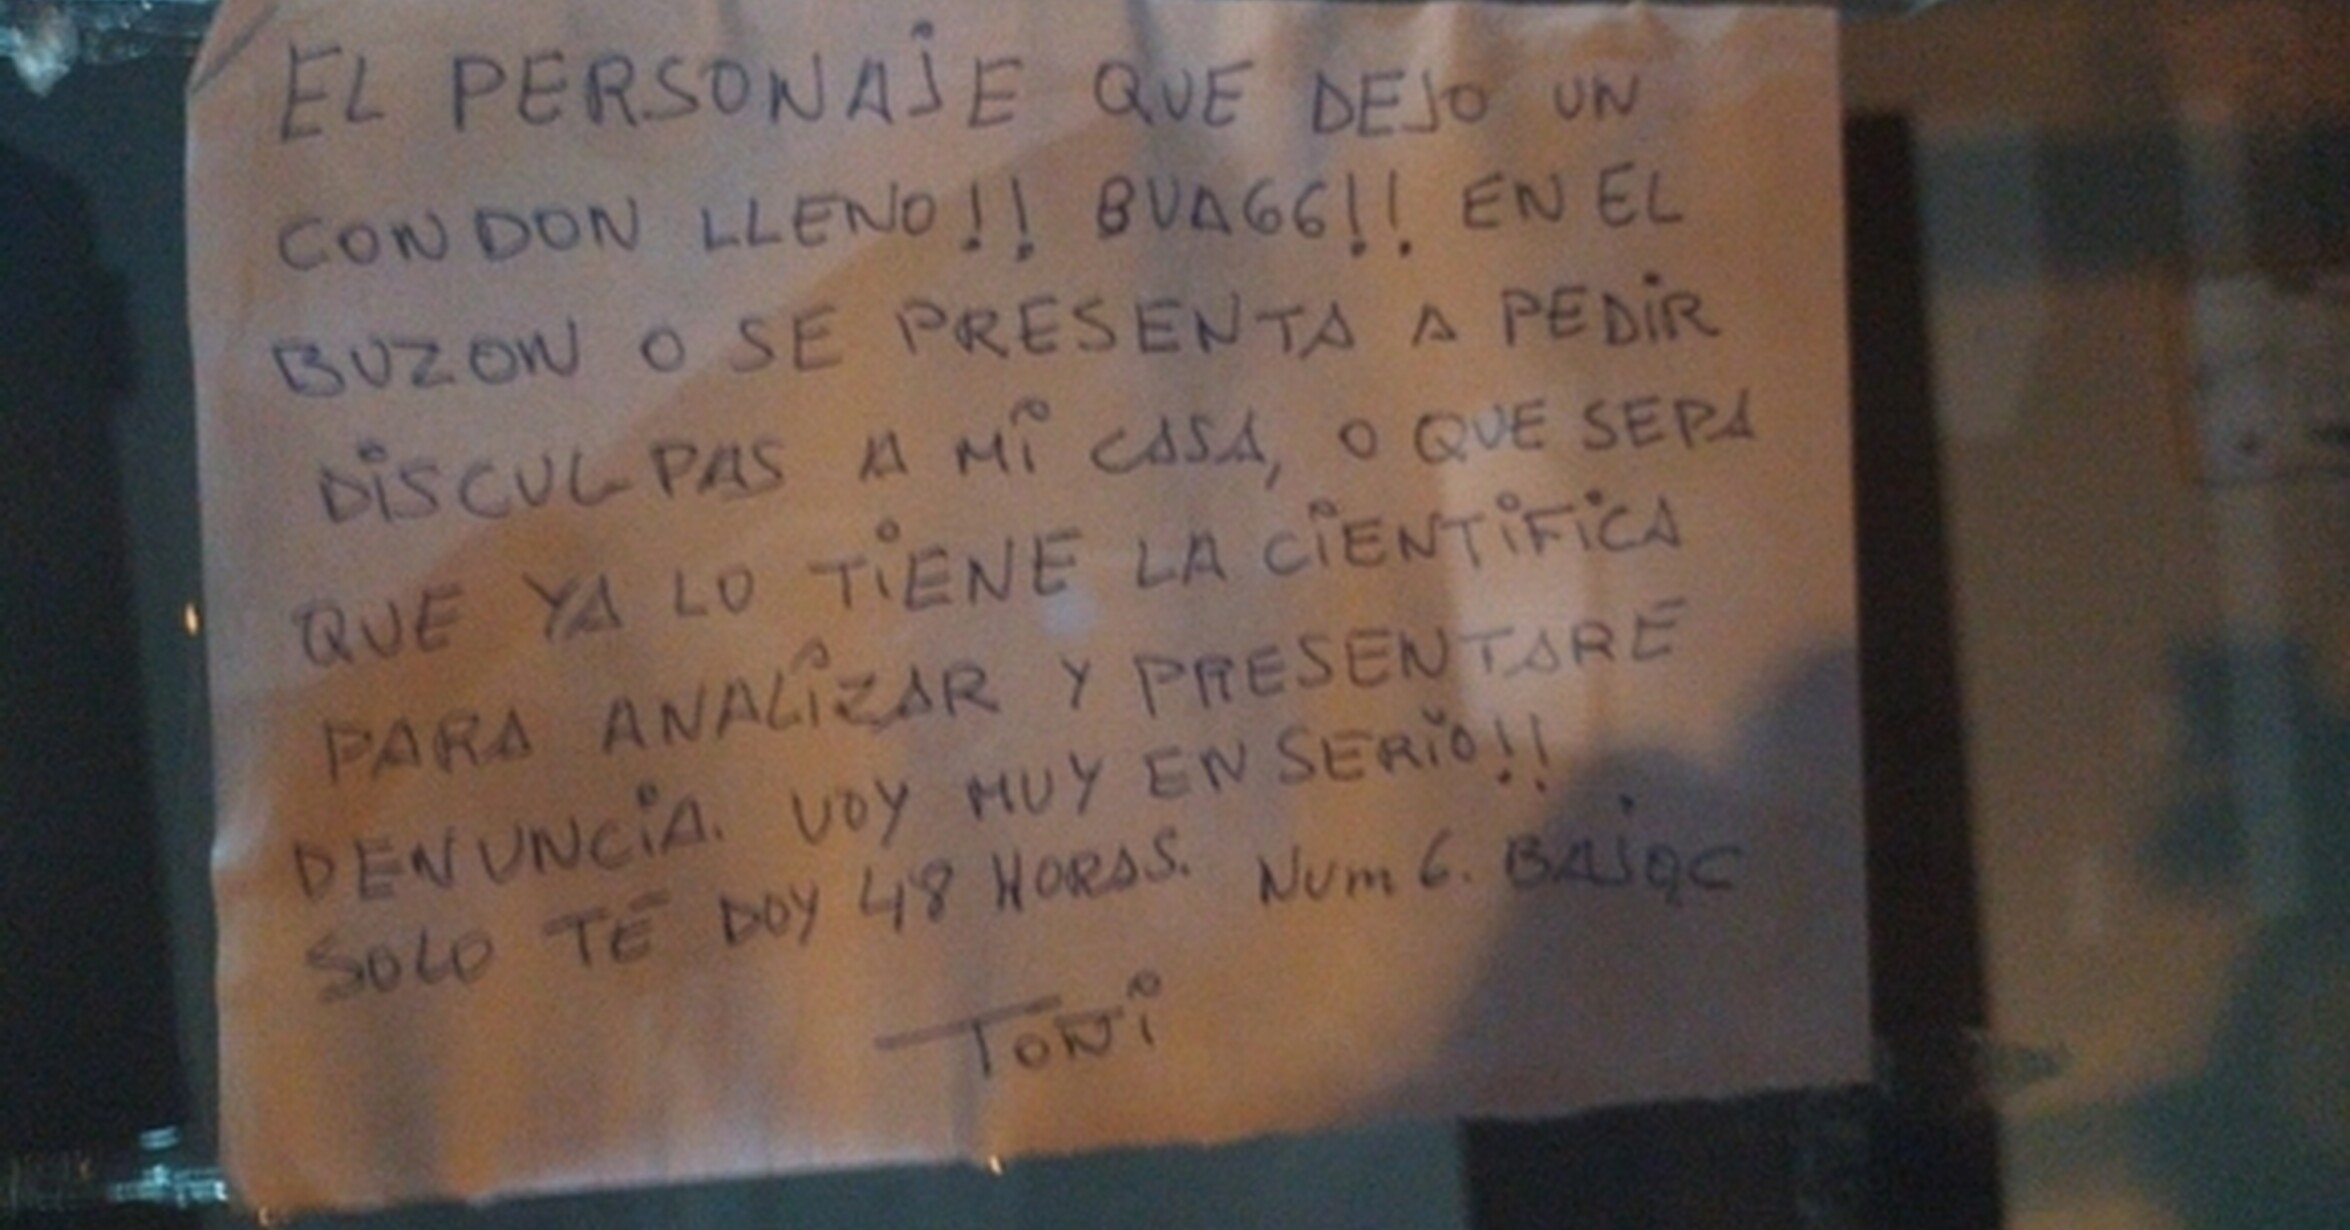 EL PERSONAJE QUE DEJO UN
CONDON LLENO!! BUAGG!! EN EL
BUZON O SE PRESENTA A PEDIR
DISCULPAS A MI CASA, O QUE SEPA
QUE YA LO TIENE LA CIENTIFICA
PARA ANALIZAR Y PRESENTARE
DENUNCIA. VOY MUY EN SERIO!!
SOLO TE DOY 48 HORAS. NUM 6. BAJO C
TONI